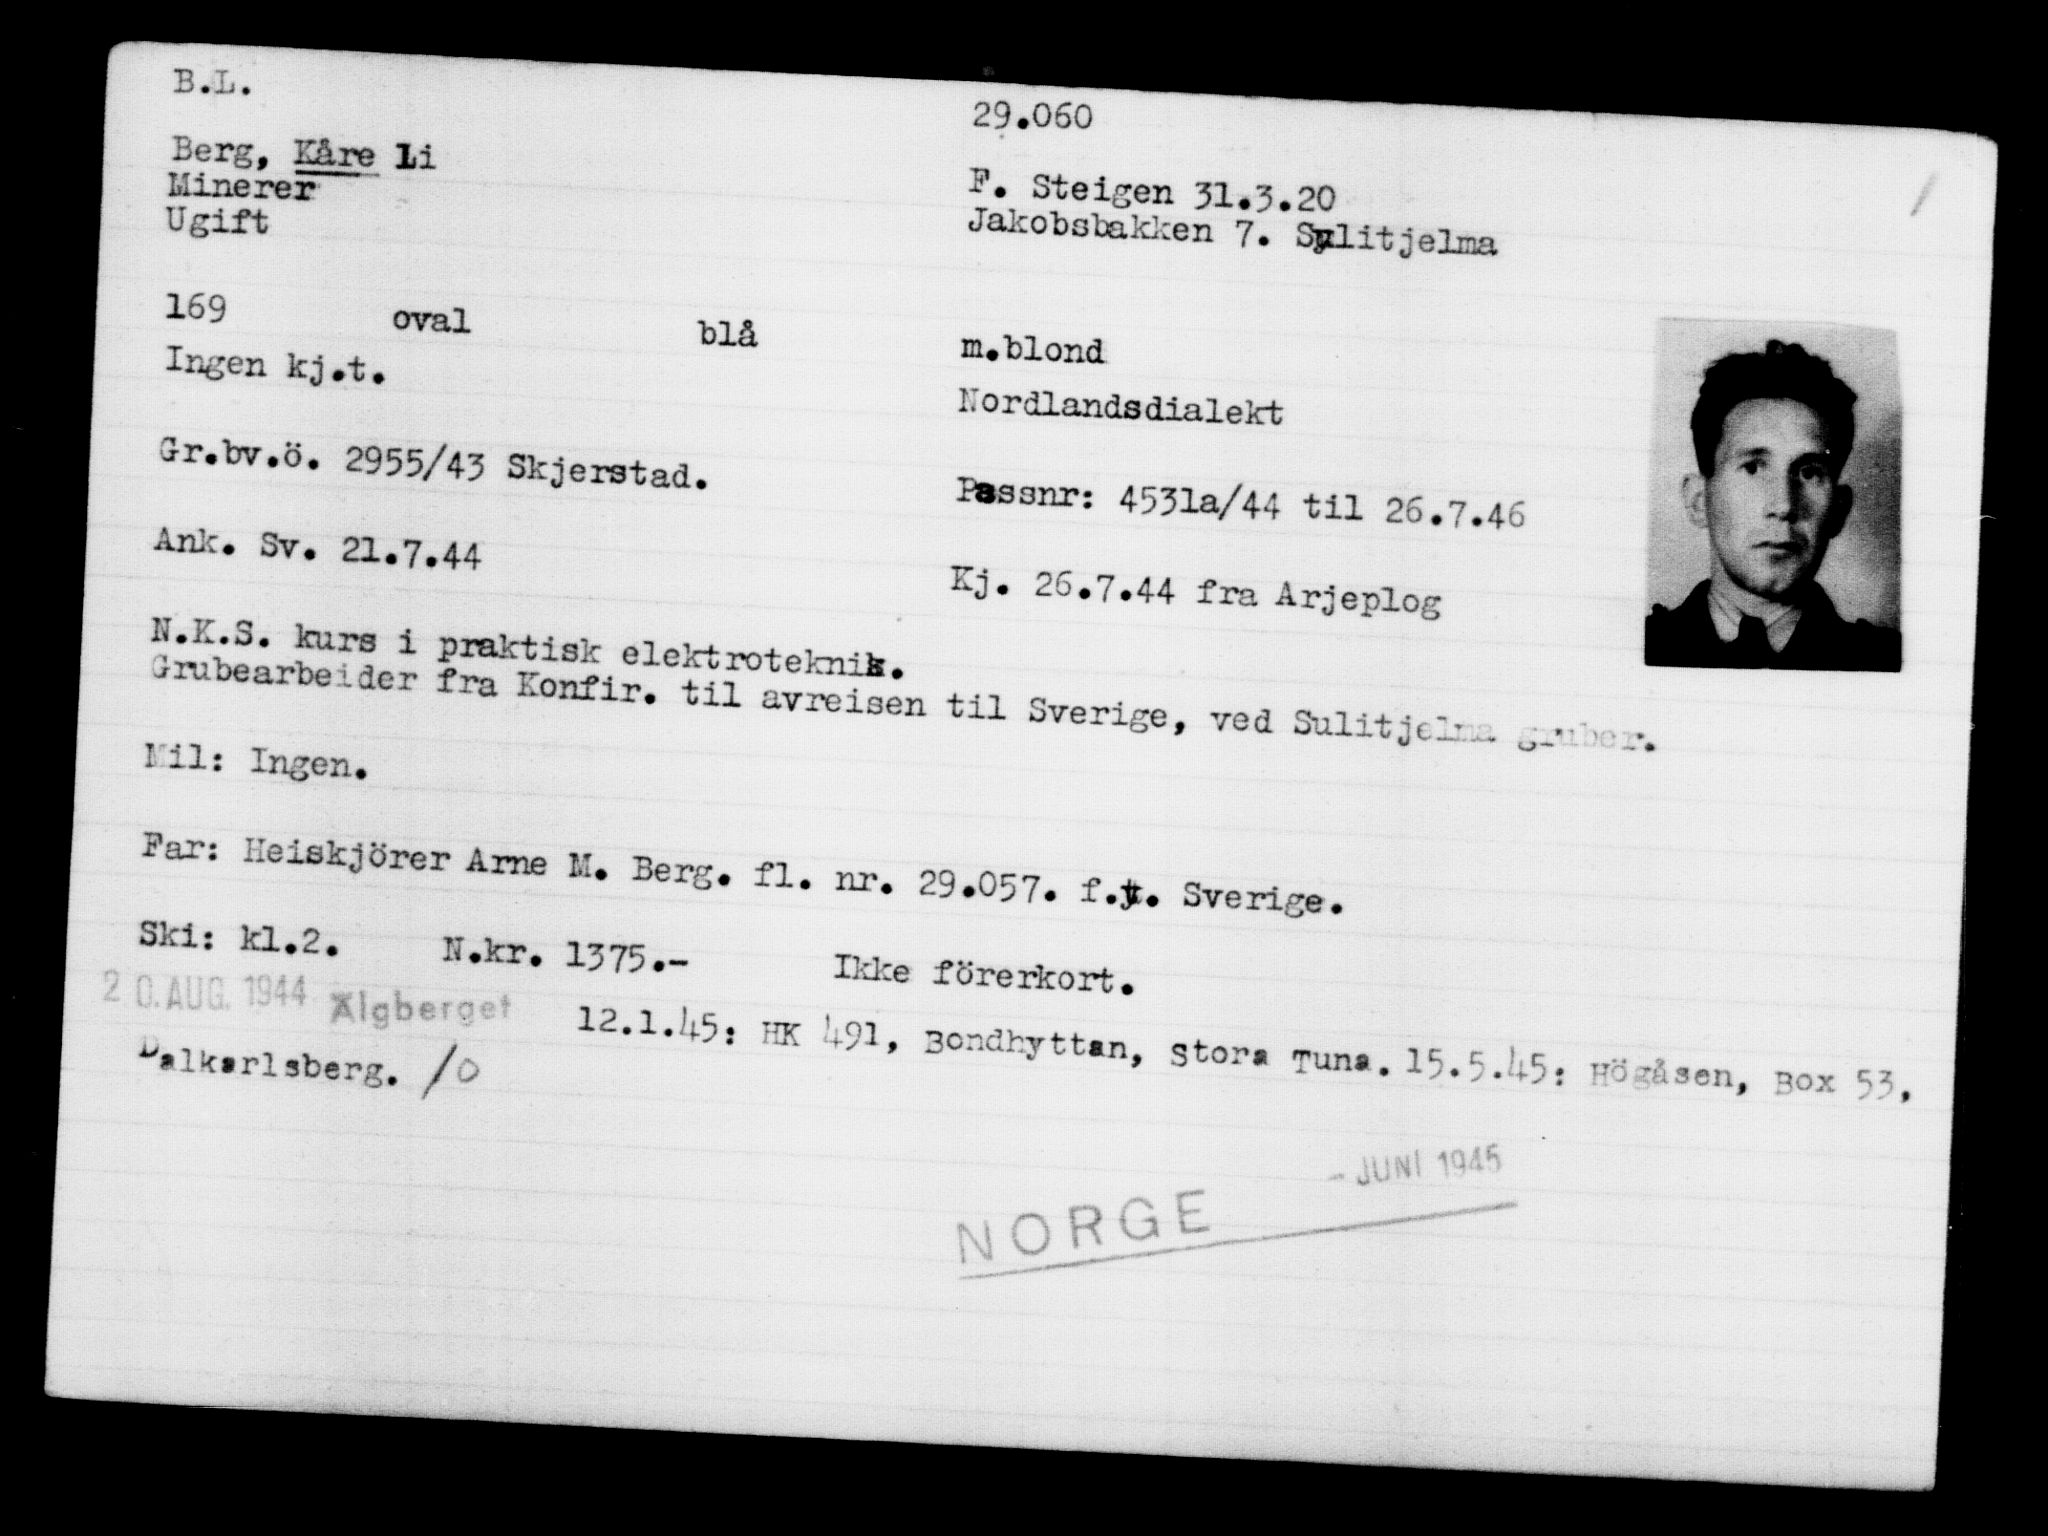 B.L.
29.060
Berg, Kåre Li
F. Steigen 31.3.20
Minerer
Jakobsbakken 7. Sulitjelma
Ugift
169 oval blå m.blond
Ingen kj.t.
Nordlandsdialekt
Gr.bv.ö. 2955/43 Skjerstad.
Passnr: 4531a/44 til 26.7.46
Ank. Sv. 21.7.44
Kj. 26.7.44 fra Arjeplog
N.K.S. kurs i praktisk elektroteknik.
Grubearbeider fra Konfir. til avreisen til Sverige, ved Sulitjelma gruber.
Mil: Ingen.
Far: Heiskjörer Arne M. Berg. fl. nr. 29.057. f.t. Sverige.
Ski: kl.2. N.kr. 1375.- Ikke förerkort.
20. AUG. 1944 Älgberget 12.1.45: HK 491, Bondhyttan, Stora Tuna. 15.5.45: Högåsen, Box 53,
Dalkarlsberg. /0
- JUNI 1945
NORGE